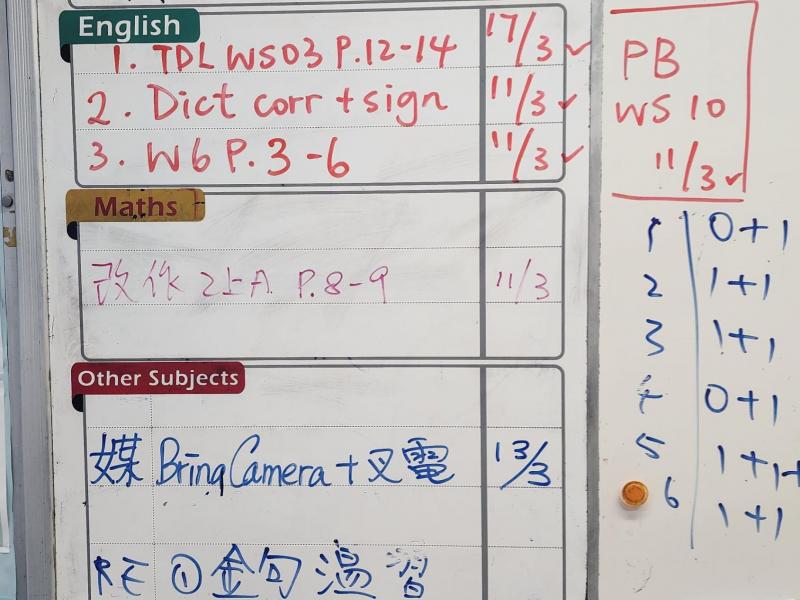 English
1. TDL WS03 P.12-14 17/3 ✓
2. Dict corr + sign 11/3 ✓
3. W6 P.3-6 11/3 ✓
Maths
改作 2上A P.8-9 11/3
Other Subjects
媒 Bring Camera + 叉電 13/3
RE ①金句溫習
PB
WS 10
11/3 ✓
1 0+1
2 1+1
3 1+1
4 0+1
5 1+1+
6 1+1